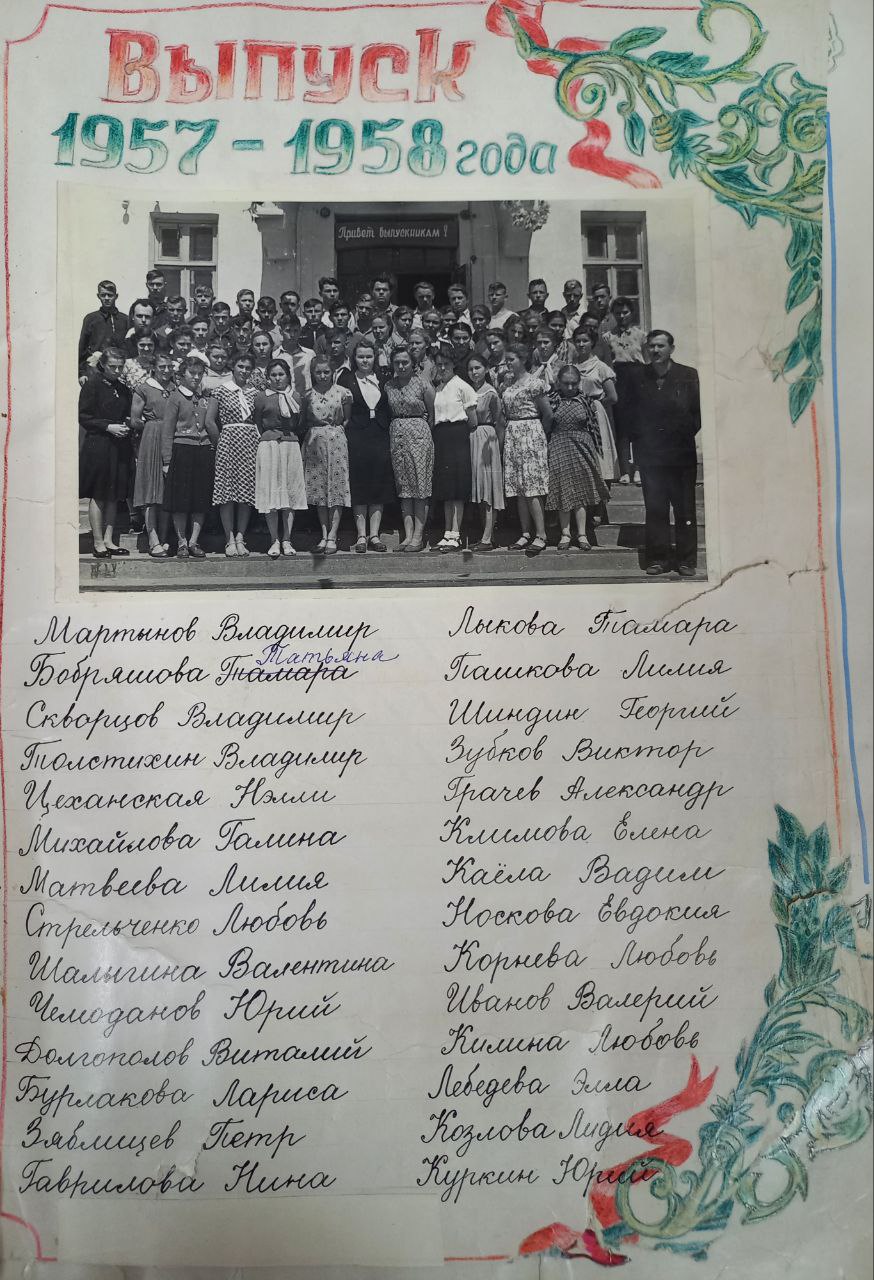 Выпуск
1957 - 1958 года
Привет выпускникам!
Мартынов Владимир
Бобряшова Тамара Татьяна
Скворцов Владимир
Толстихин Владимир
Цеханская Нэлли
Михайлова Галина
Матвеева Лилия
Стрельченко Любовь
Шалыгина Валентина
Чемоданов Юрий
Долгополов Виталий
Бурлакова Лариса
Зяблицев Петр
Гаврилова Нина
Лыкова Тамара
Пашкова Лилия
Шиндин Георгий
Зубков Виктор
Грачев Александр
Климова Елена
Каёла Вадим
Носкова Евдокия
Корнева Любовь
Иванов Валерий
Килина Любовь
Лебедева Элла
Козлова Лидия
Куркин Юрий